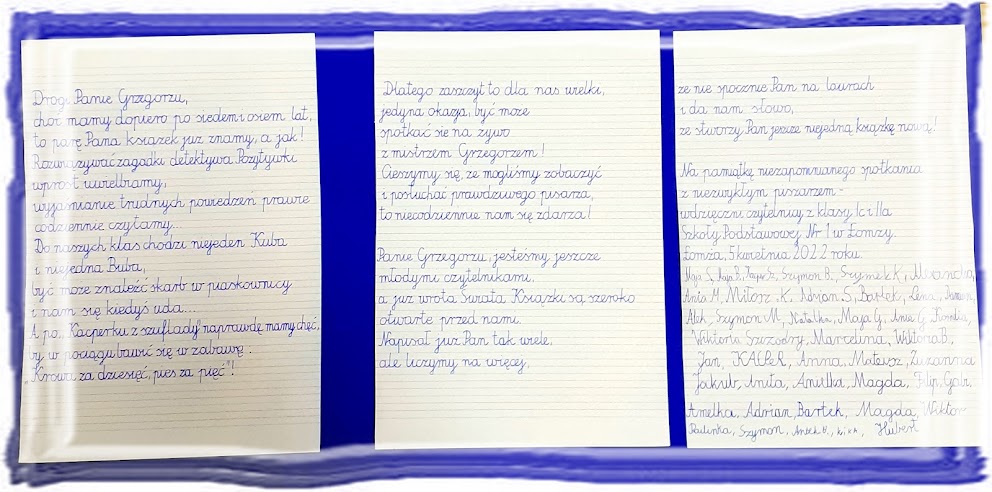 Drogi Panie Grzegorzu,
choć mamy dopiero po siedem i osiem lat,
to parę Pana książek już znamy, a jak!
Rozwiązywać zagadki detektywa Pozytywki
wprost uwielbiamy,
wyjaśnianie trudnych powiedzeń prawie
codziennie czytamy.
Do naszych klas chodzi niejeden Kuba
i niejedna Buba,
być może znaleźć skarb w piaskownicy
i nam się kiedyś uda...
A po „Kacperku z szuflady" naprawdę mamy chęć,
by w pociągu bawić się w zabawę:
„Krowa za dziesięć, pies za pięć"!
Dlatego zaszczyt to dla nas wielki,
jedyna okazja, być może
spotkać się na żywo
z mistrzem Grzegorzem!
Cieszymy się, że mogliśmy zobaczyć
i posłuchać prawdziwego pisarza,
to niecodziennie nam się zdarza!
Panie Grzegorzu, jesteśmy jeszcze
młodymi czytelnikami,
a już wrota Świata Książki są szeroko
otwarte przed nami.
Napisał już Pan tak wiele,
ale liczymy na więcej,
że nie spocznie Pan na laurach
i da nam słowo,
że stworzy Pan jeszcze niejedną książkę nową!
Na pamiątkę niezapomnianego spotkania
z niezwykłym pisarzem -
wdzięczni czytelnicy z klasy Ic i IIa
Szkoły Podstawowej Nr 1 w Łomży.
Łomża, 5 kwietnia 2022 roku.
Maja R., Szymon B., Szymek K.,
Anita M, Miłosz. K, Adrian. S, Bartek, Lena,
Alek, Szymon M, Natalka, Maja G, Ania G, Kornelia,
Wiktoria Szczodry, Marcelina, Wiktoria B,
Jan, KACPER, Anna, Mateusz, Zuzanna
Jakub, Anita, Anulka, Magda, Filip, Gabr.
Amelka, Adrian, Bartek, Magda, Wiktor
Paulinka, Szymon, Antek B., Hubert